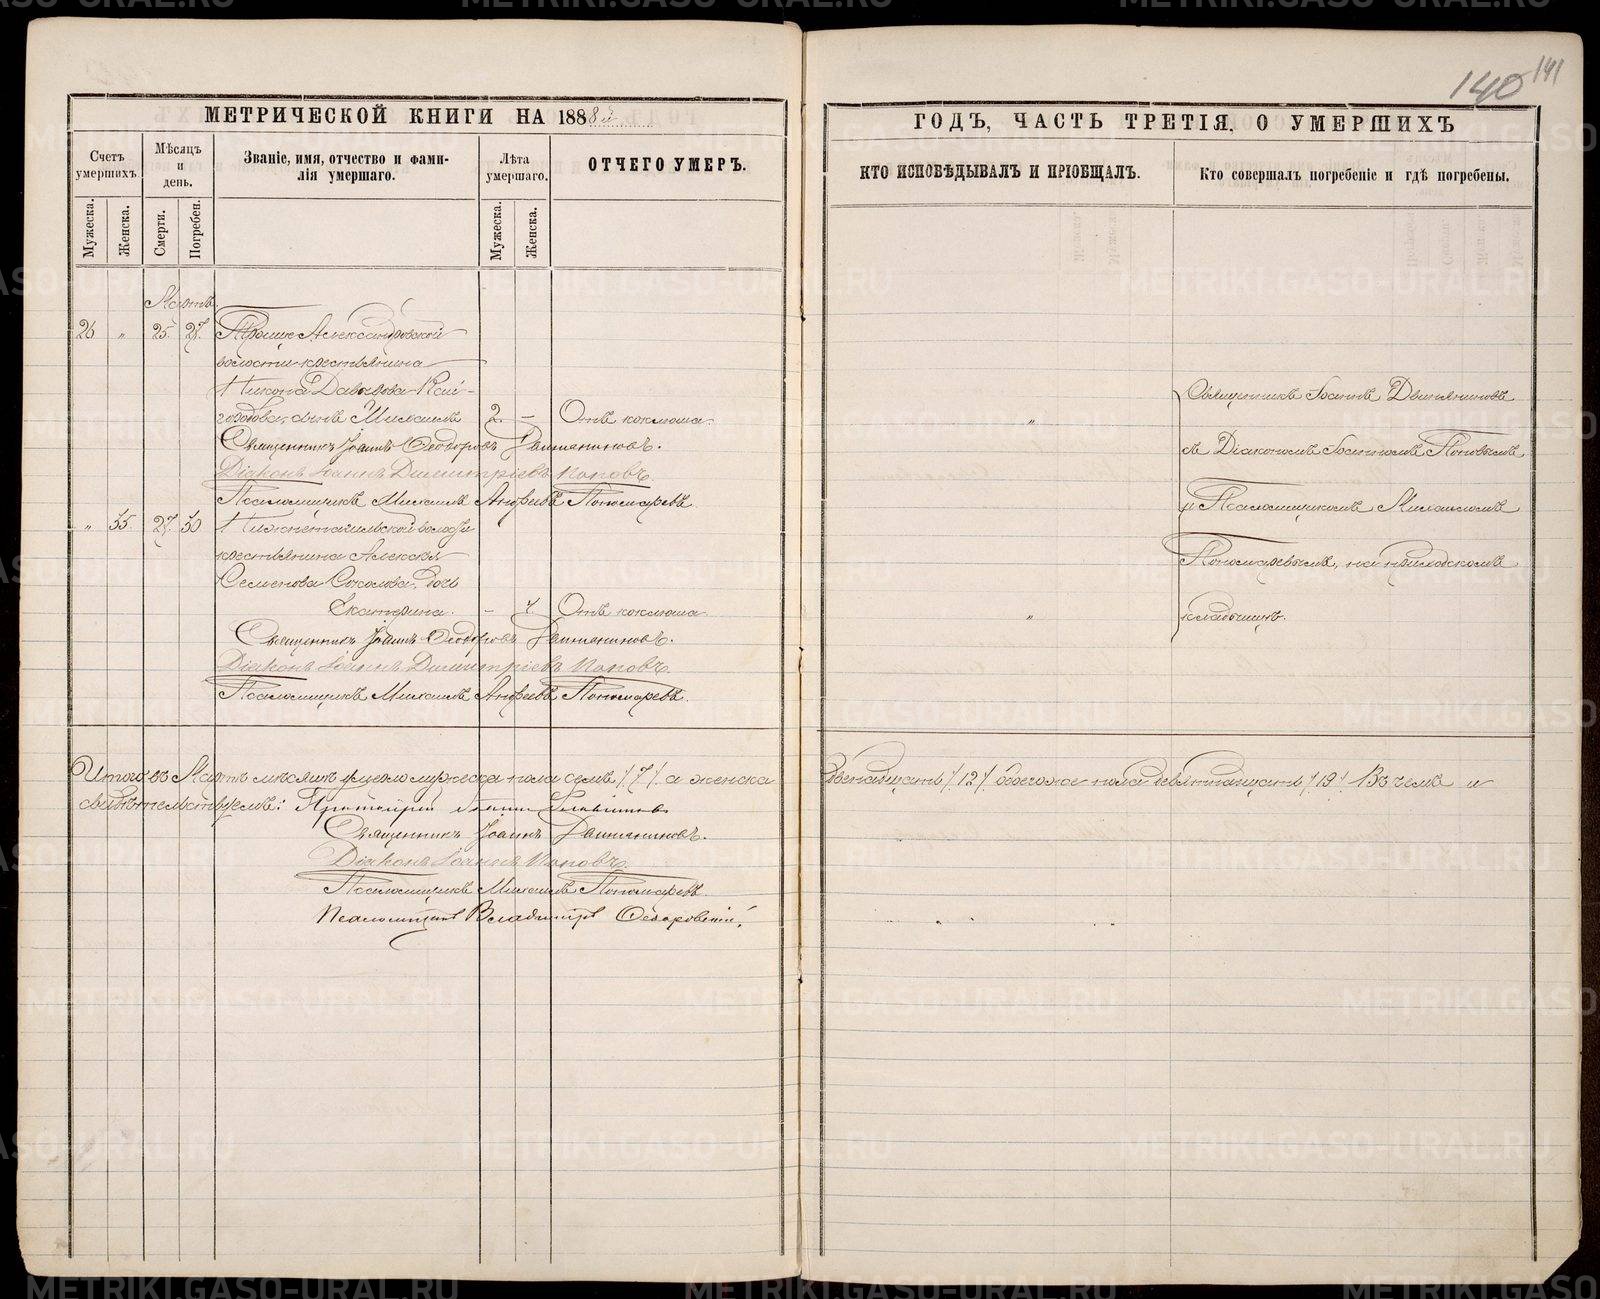 140 141
МЕТРИЧЕСКОЙ КНИГИ НА 1888й
Счетъ умершихъ.
Мужеска.
Женска.
Мѣсяцъ и день.
Смерти.
Погребен.
Званіе, имя, отчество и фами-
лія умершаго.
Лѣта умершаго.
Мужеска.
Женска.
ОТЧЕГО УМЕРЪ.
Мартъ.
26 „ 25. 27.
Троице Александровской
волости крестьянина
Никона Давыдова Кай-
городова, сынъ Михаилъ 2 – Отъ коклюша.
Священникъ Іоаннъ Ѳеодоровъ Двиняниновъ.
Діаконъ Іоаннъ Димитріевъ Поповъ.
Псаломщикъ Михаилъ Андреевъ Пономаревъ.
„ 35. 27. 30 Нижнетагильской волости
крестьянина Алексѣя
Семенова Соколова, дочь
Екатерина. – Отъ коклюша.
Священникъ Іоаннъ Ѳеодоровъ Двиняниновъ.
Діаконъ Іоаннъ Димитріевъ Поповъ.
Псаломщикъ Михаилъ Андреевъ Пономаревъ.
Итого въ Мартѣ мѣсяцѣ умерло мужеска пола семь /7/. а женска
свидѣтельствуемъ: Протоіерей
Священникъ Іоаннъ Двиняниновъ.
Діаконъ Іоаннъ Поповъ.
Псаломщикъ Михаилъ Пономаревъ.
Псаломщикъ Владиміръ
ГОДЪ, ЧАСТЬ ТРЕТІЯ, О УМЕРШИХЪ
КТО ИСПОВѢДЫВАЛЪ И ПРІОБЩАЛЪ.
Кто совершалъ погребеніе и гдѣ погребены.
„
„
Священникъ Іоаннъ Двиняниновъ
съ Діакономъ Іоанномъ Поповымъ
и Псаломщикомъ Михаиломъ
Пономаревымъ, на приходскомъ
кладбищѣ.
двенадцать /12/. обоего же пола девятнадцать /19/. Въ чемъ и
METRIKI.GASO-URAL.RU